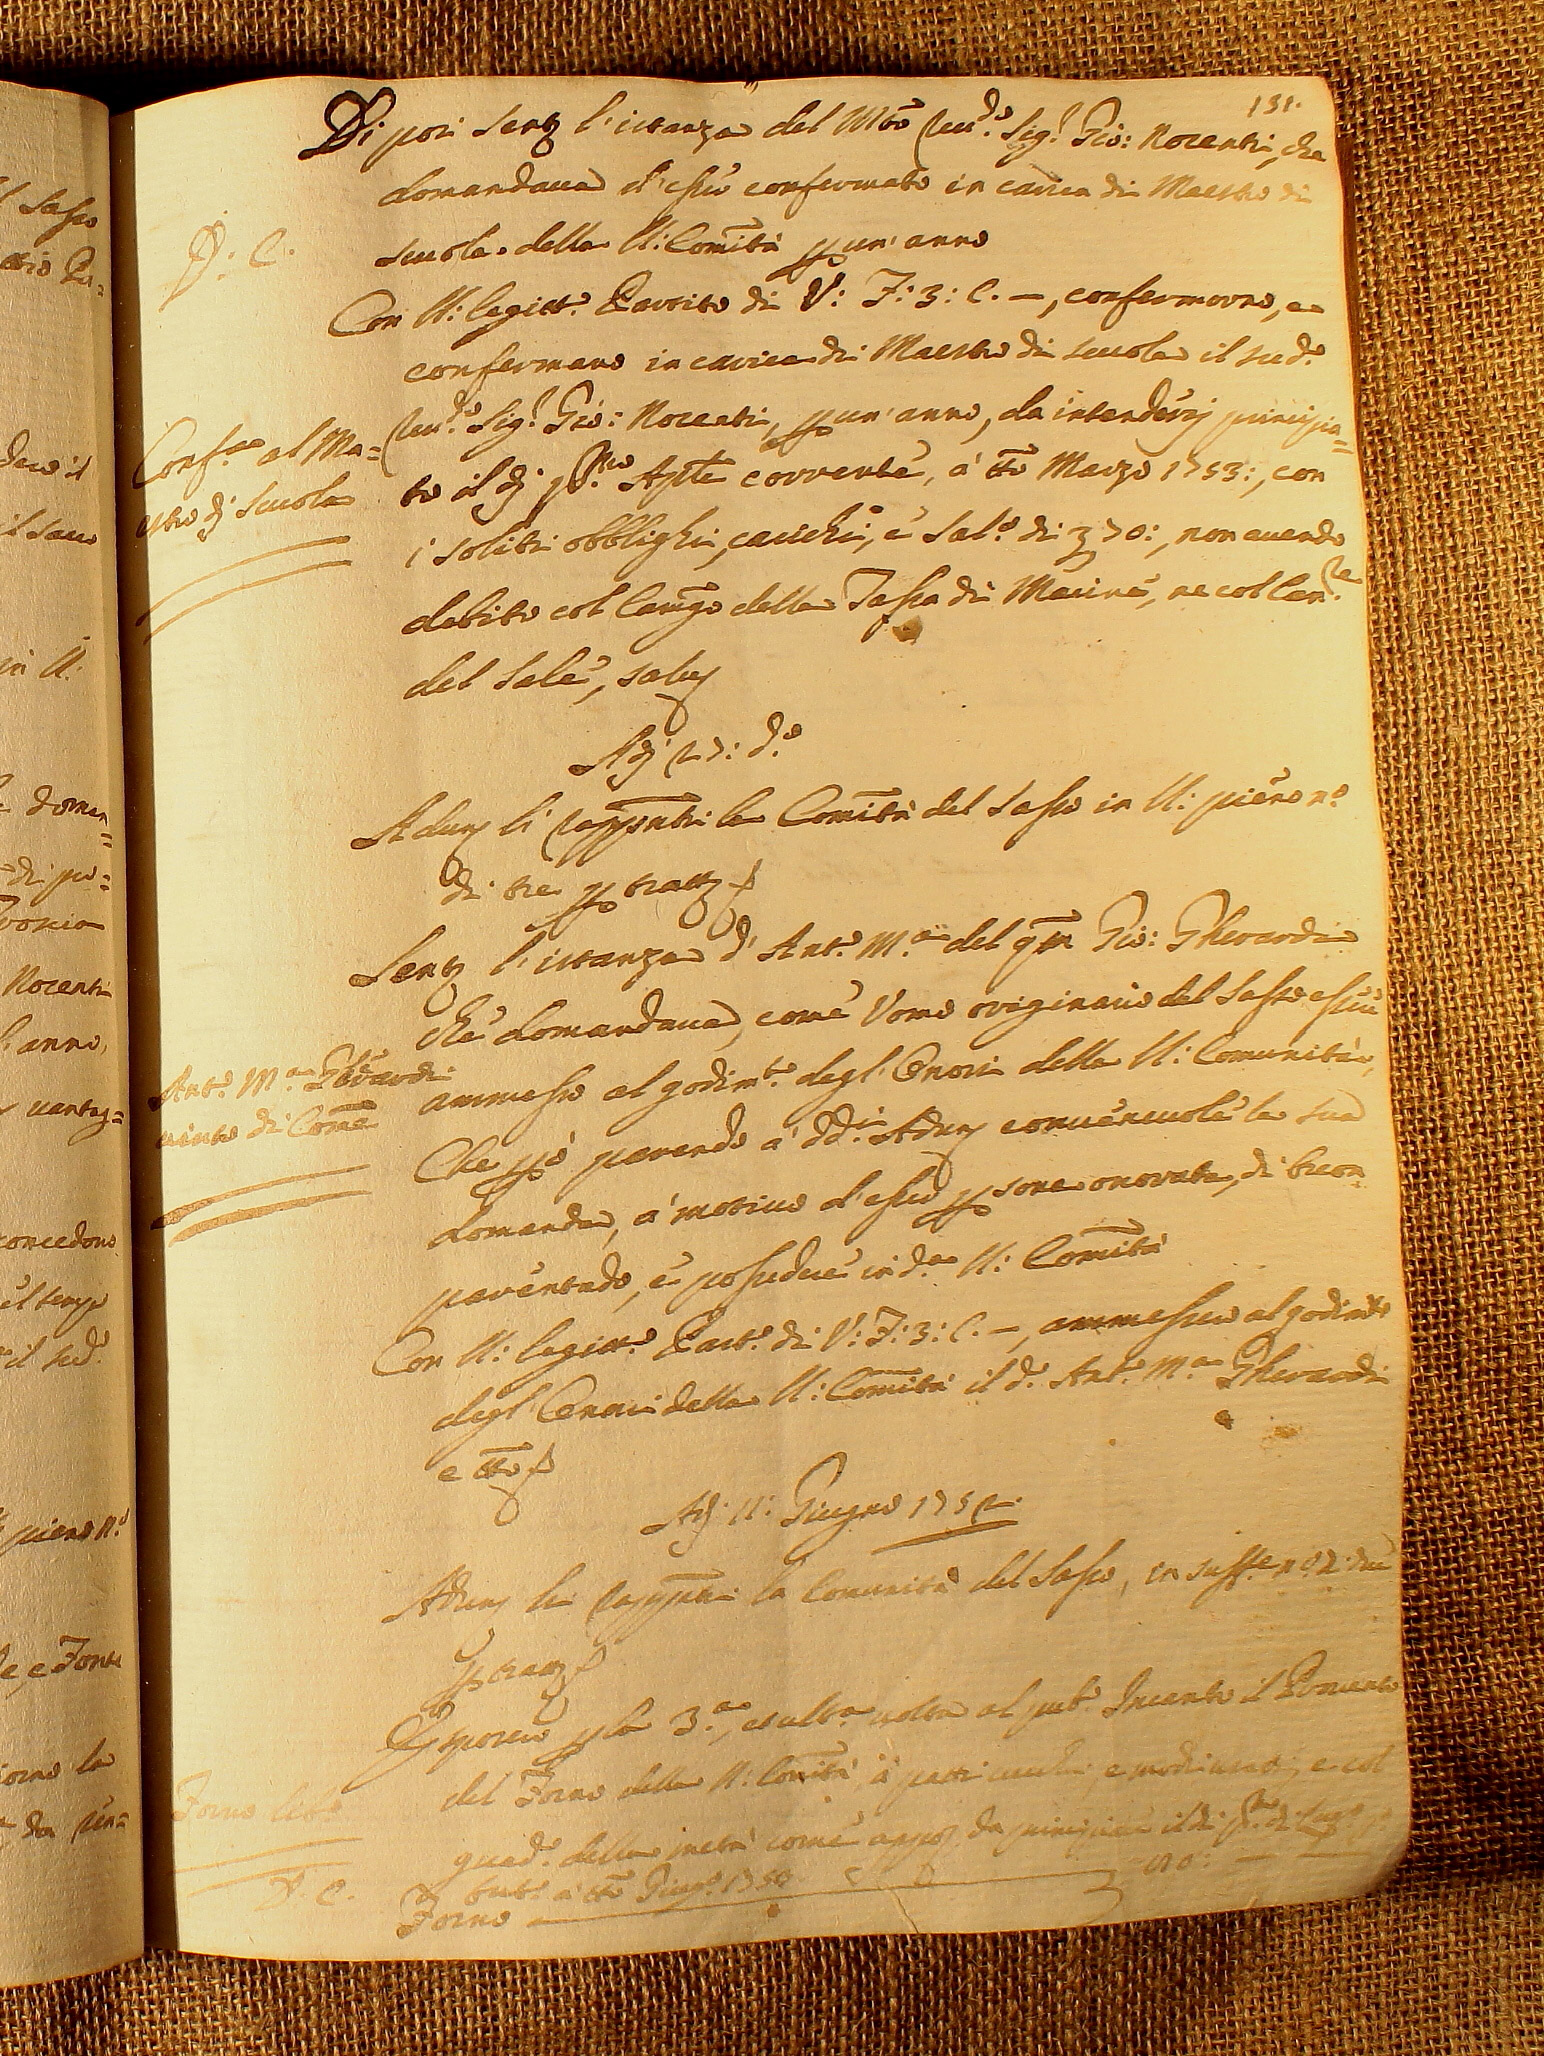 131.
Di poi Sentg l'istanza del Mto Revdo. Sigr. Gio: Nocenti, che
domandava d'essere confermato in carica di Maestro di
scuola della U: Comità p un' anno
D: C.
Con U: legitto. Partito di V: F: 3: C. —, confermorno, e
confermano in carica di Maestro di scuola il sudo.
Revdo. Sigr. Gio: Nocenti, p un' anno, da intendersj principia=
to il dj pmo. Aple corrente, à tto Marzo 1753:, con
i soliti obblighi, carichi, e Salo. di 70:, non avendo
debito col Camgo della Tassa di Macine, ne col Canre.
del Sale, salvg
Confa. al Ma=
estro dj Scuola
Adj 27: do.
Adung li rappnti la Comità del Sasso in U: pieno no.
di tre p trattg
Sentg l'istanza d' Anto. Ma. del qm Gio: Gherardi
che domandava, come Uomo originario del Sasso essere
ammesso al godimto. degl' Onori della U: Comunità,
Che pò parendo à ddi. Adung convenevole la sua
domanda, à motivo d'essere psona onorata, di buon
parentado, e possedere in da. U: Comità
Anto. Ma. Gherardi
vinto di Comè
Con U: legitto. Parto. di V: F: 3: C. —, ammessero al godimto
degl' Onori della U: Comità il do. Anto. Ma. Gherardi
e tto
Adj 11: Giugno 1752.
Adung li rappnti la Comunità del Sasso, in suffte no 2: due
p trattg
Esposero p la 3a., et ulta. volta al pubo. Incanto il Provento
del Forno della U: Comità, à patti vecchi, e moderati, e col
guado. della metà come appo. da principiare il di pmo. di Lugo.
futo. à tto Giugo. 1753.
Forno libo.
D. C.
Forno